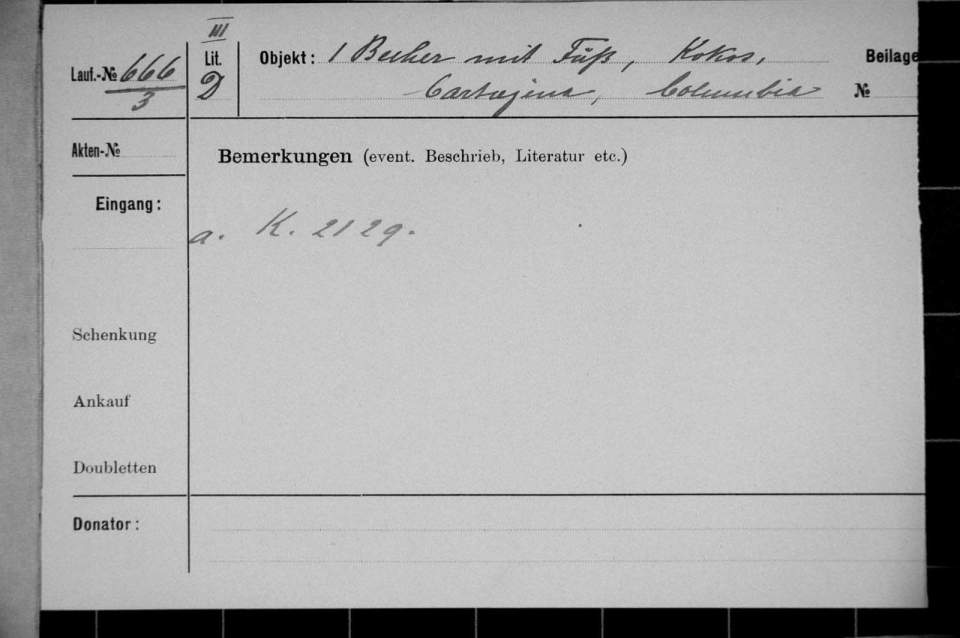 III
Lauf.-№ 666/3
Lit. D
Objekt: 1 Becher mit Fuß, Kokos,
Cartagena, Columbia
Beilage
№
Akten-№
Bemerkungen (event. Beschrieb, Literatur etc.)
Eingang:
a. K. 2129.
Schenkung
Ankauf
Doubletten
Donator: